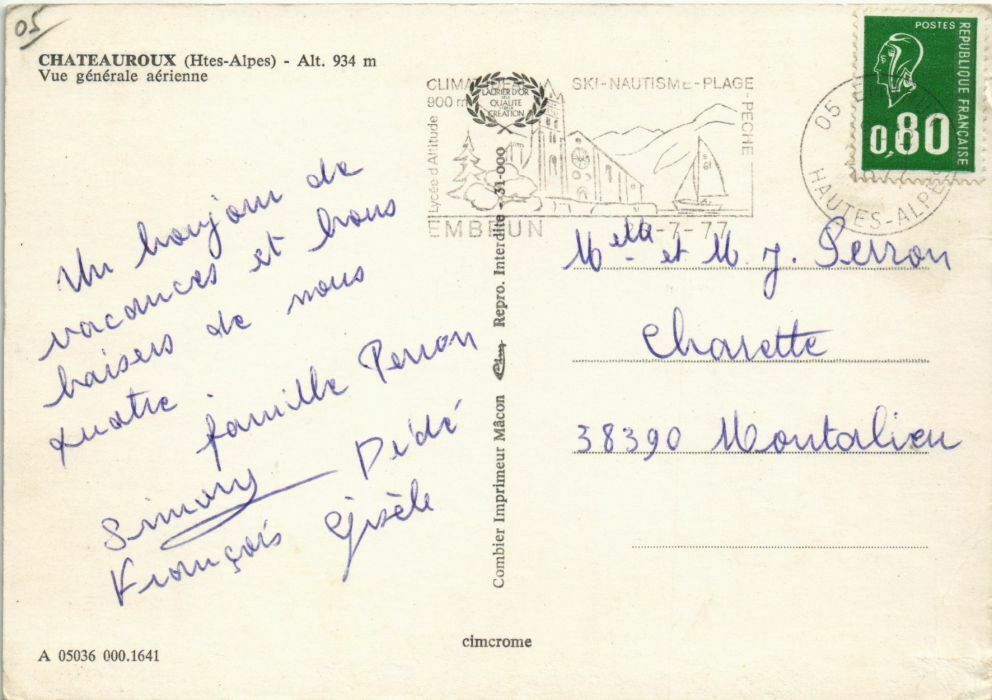 05
CHATEAUROUX (Htes-Alpes) - Alt. 934 m
Vue générale aérienne
Un bonjour de
vacances et bons
baisers de nous
quatre
famille Perron
Simon Dédé
François Gisèle
A 05036 000.1641
Combier Imprimeur Mâcon Cim Repro. Interdite - 31-000
cimcrome
LAURIER D'OR
DE LA
QUALITE
CREATION
SKI-NAUTISME-PLAGE-PECHE
900 m
Lycée d'Altitude
EMBRUN
-7-77
05
HAUTES-ALPES
POSTES
REPUBLIQUE FRANÇAISE
0,80
Melle et M. J. Perron
Charette
38390 Montalieu